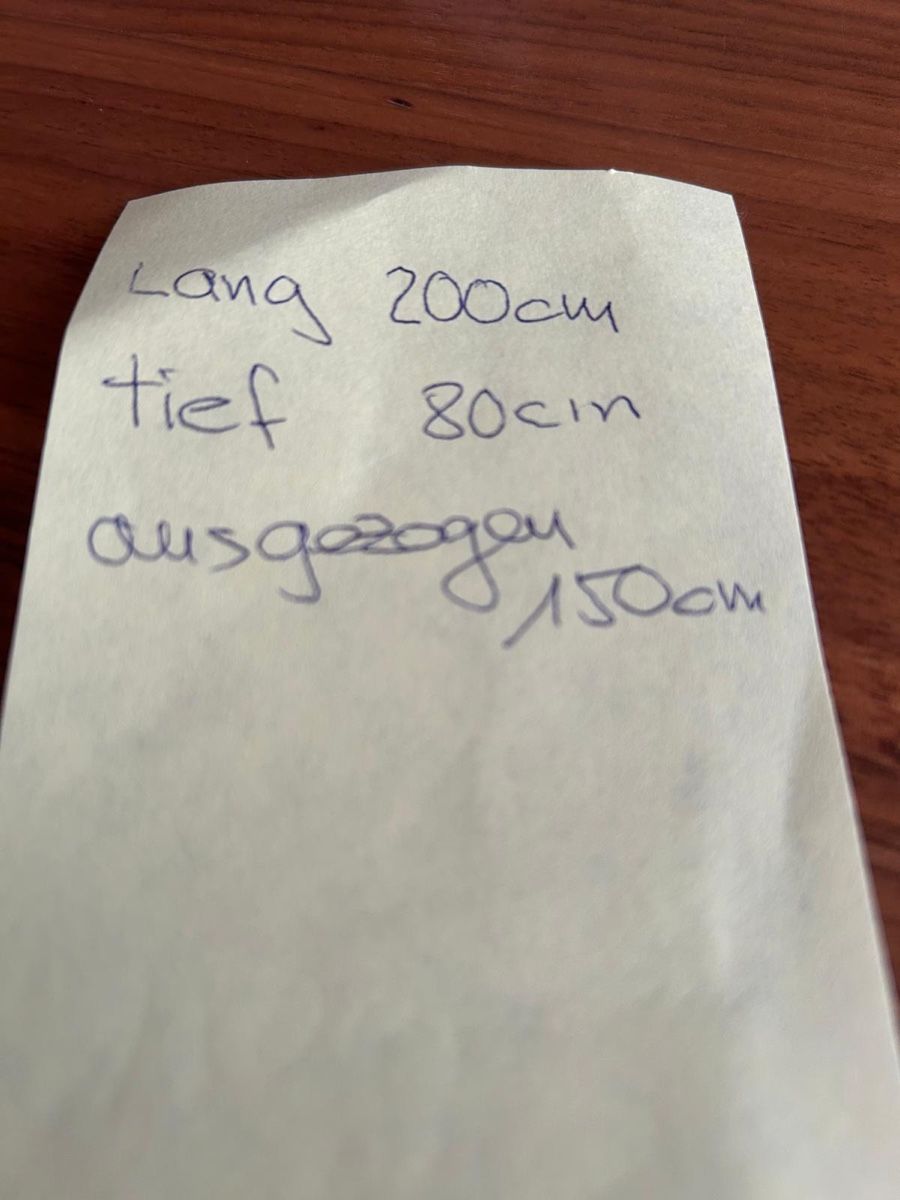 Lang 200cm
tief 80cm
ausgezogen
150cm